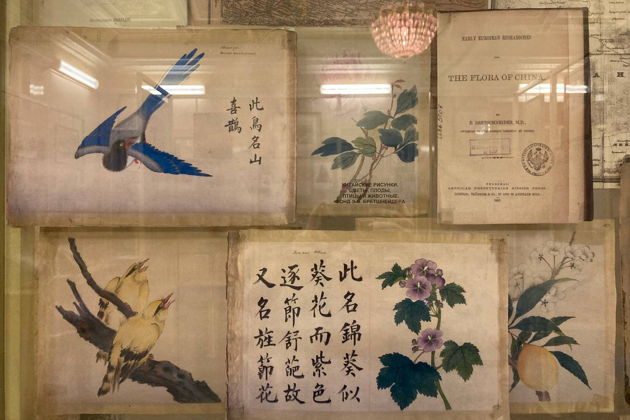 此鳥名山
喜鵲
EARLY EUROPEAN RESEARCHES
THE FLORA OF CHINA
BY
E. BRETSCHNEIDER, M.D.,
SHANGHAI
AMERICAN PRESBYTERIAN MISSION PRESS
КИТАЙСКИЕ РИСУНКИ.
ЦВЕТЫ, ПЛОДЫ,
ПТИЦЫ И ЖИВОТНЫЕ.
ФОНД Э.В. БРЕТШНЕЙДЕРА
此名錦葵似
葵花而紫色
逐節舒葩故
又名旌節花